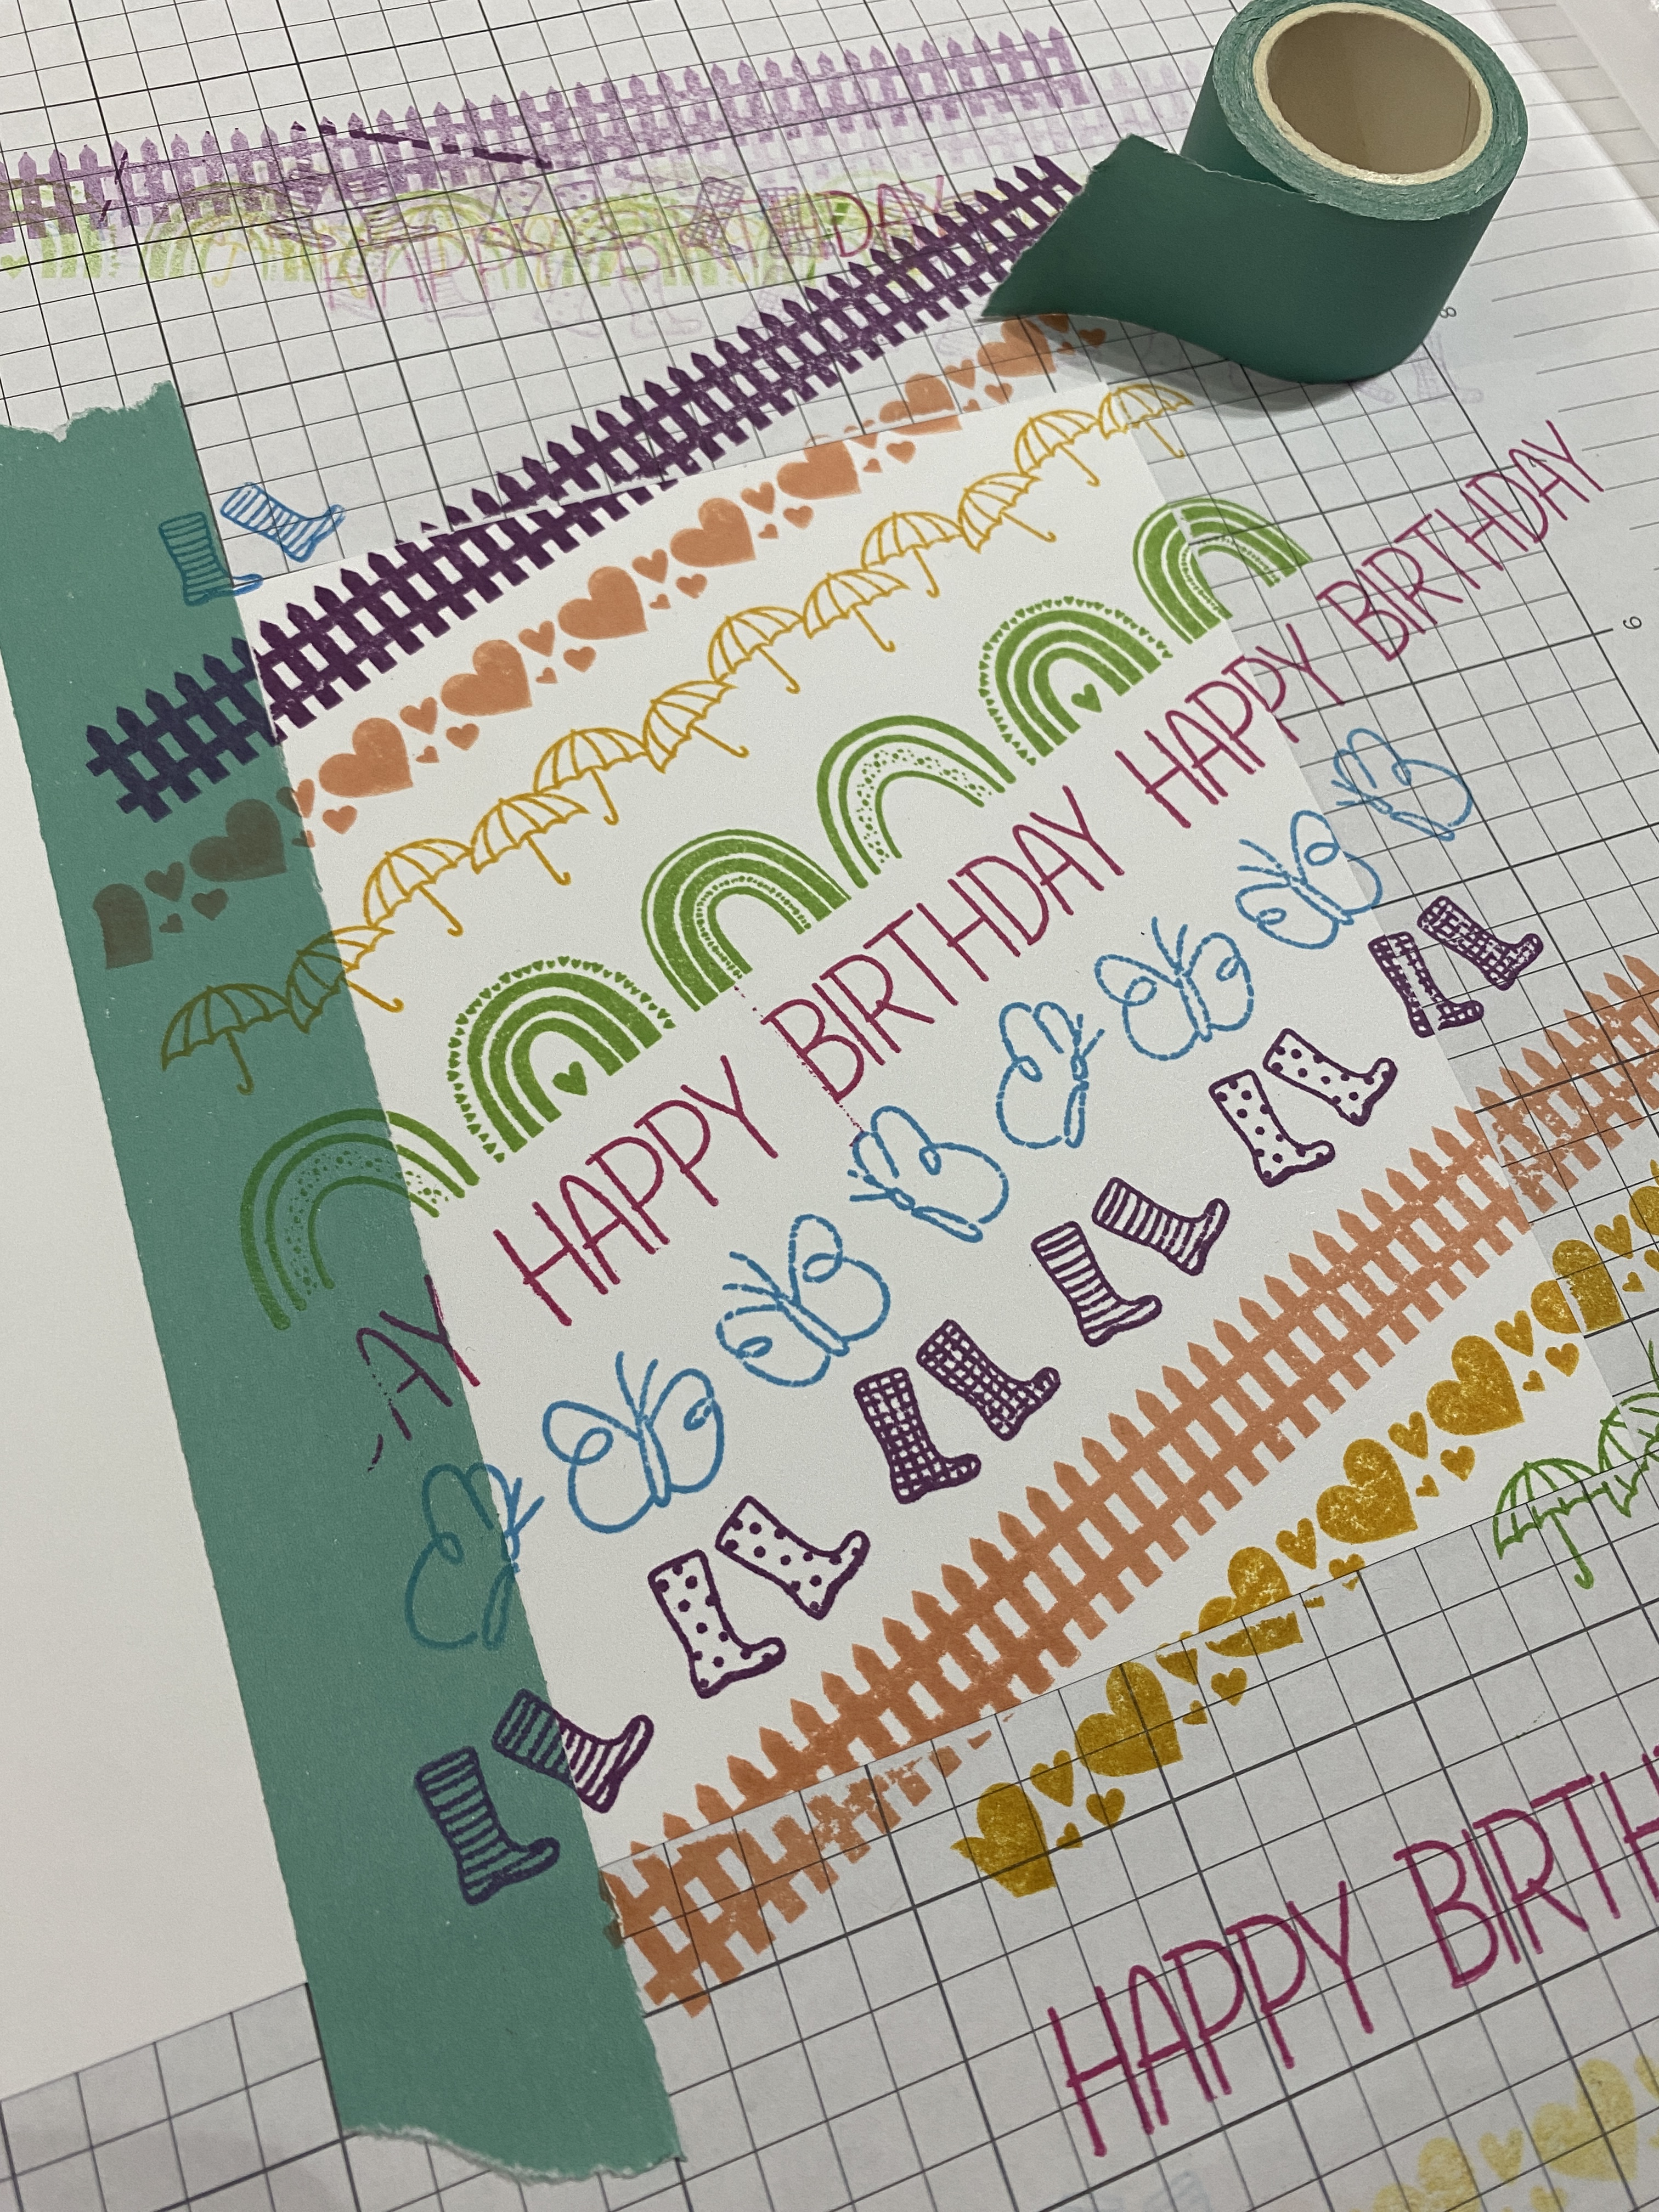 HAPPY BIRTHDAY
8
9
AY HAPPY BIRTHDAY HAPPY BIRTHDAY
HAPPY BIRTH